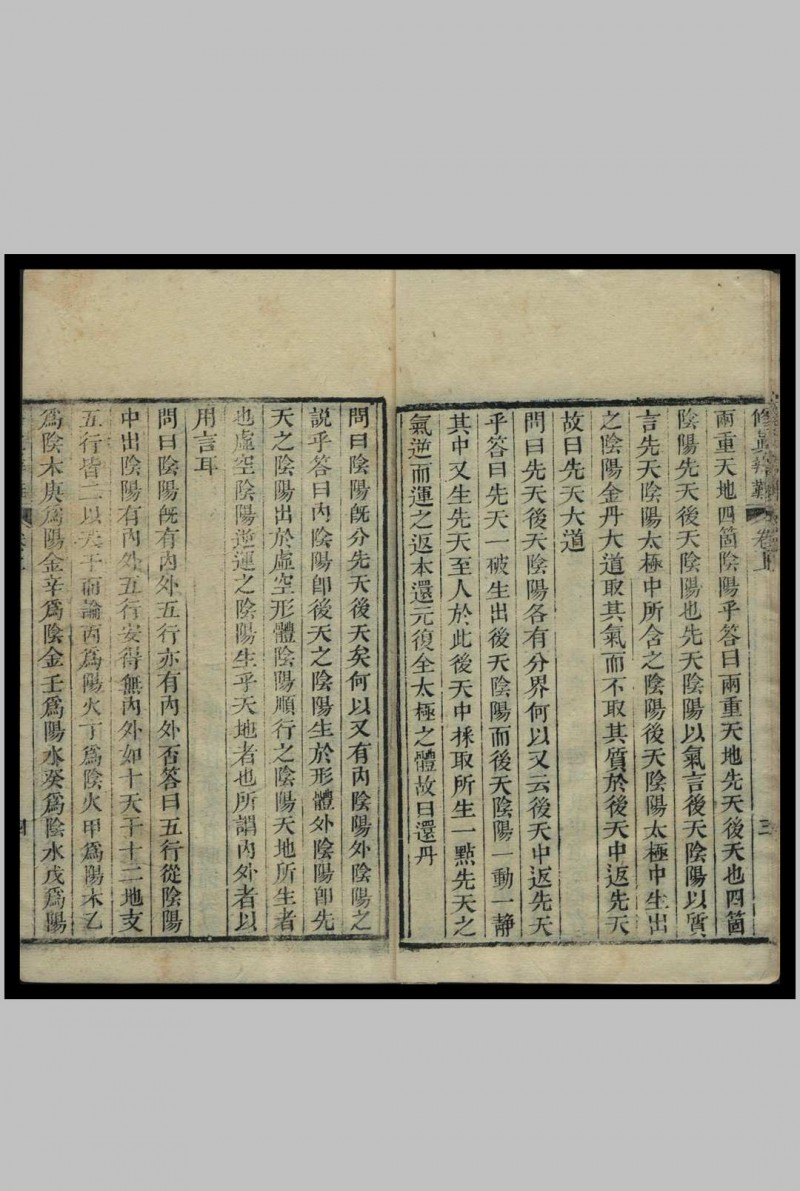 修真辨難　卷上　三
兩重天地四箇陰陽乎答曰兩重天地先天後天也四箇
陰陽先天後天陰陽也先天陰陽以氣言後天陰陽以質
言先天陰陽太極中所含之陰陽後天陰陽太極中生出
之陰陽金丹大道取其氣而不取其質於後天中返先天
故曰先天大道
問曰先天後天陰陽各有分界何以又云後天中返先天
乎答曰先天一破生出後天陰陽而後天陰陽一動一靜
其中又生先天至人於此後天中採取所生一點先天之
氣逆而運之返本還元復全太極之體故曰還丹
問曰陰陽旣分先天後天矣何以又有內陰陽外陰陽之
說乎答曰內陰陽卽後天之陰陽生於形體外陰陽卽先
天之陰陽出於虛空形體陰陽順行之陰陽天地所生者
也虛空陰陽逆運之陰陽生乎天地者也所謂內外者以
用言耳
問曰陰陽旣有內外五行亦有內外否答曰五行從陰陽
中出陰陽有內外五行安得無內外如十天干十二地支
五行皆二以天干而論丙爲陽火丁爲陰火甲爲陽木乙
爲陰木庚爲陽金辛爲陰金壬爲陽水癸爲陰水戊爲陽